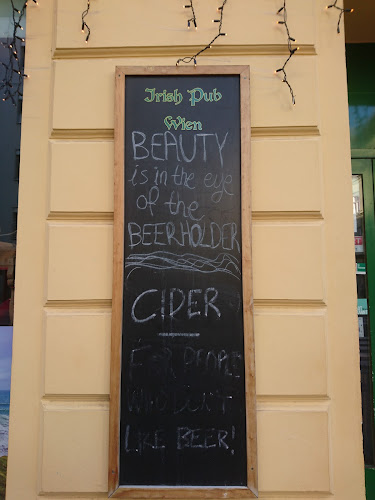 Irish Pub
Wien
BEAUTY
is in the eye
of the
BEERHOLDER
CIDER
FOR PEOPLE
WHO DON'T
LIKE BEER!